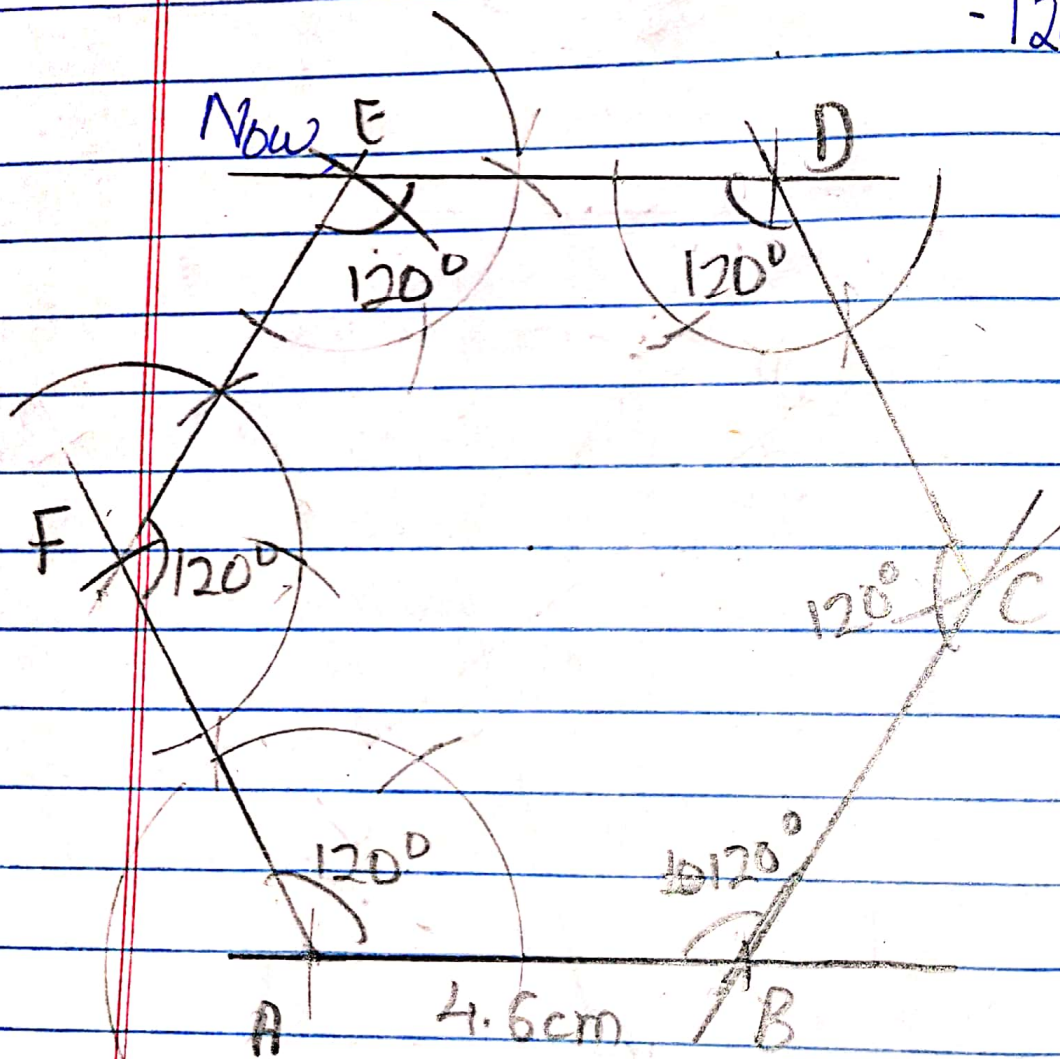 -12
Now E D
120° 120°
F 120° 120° C
120° 120°
A 4.6cm B